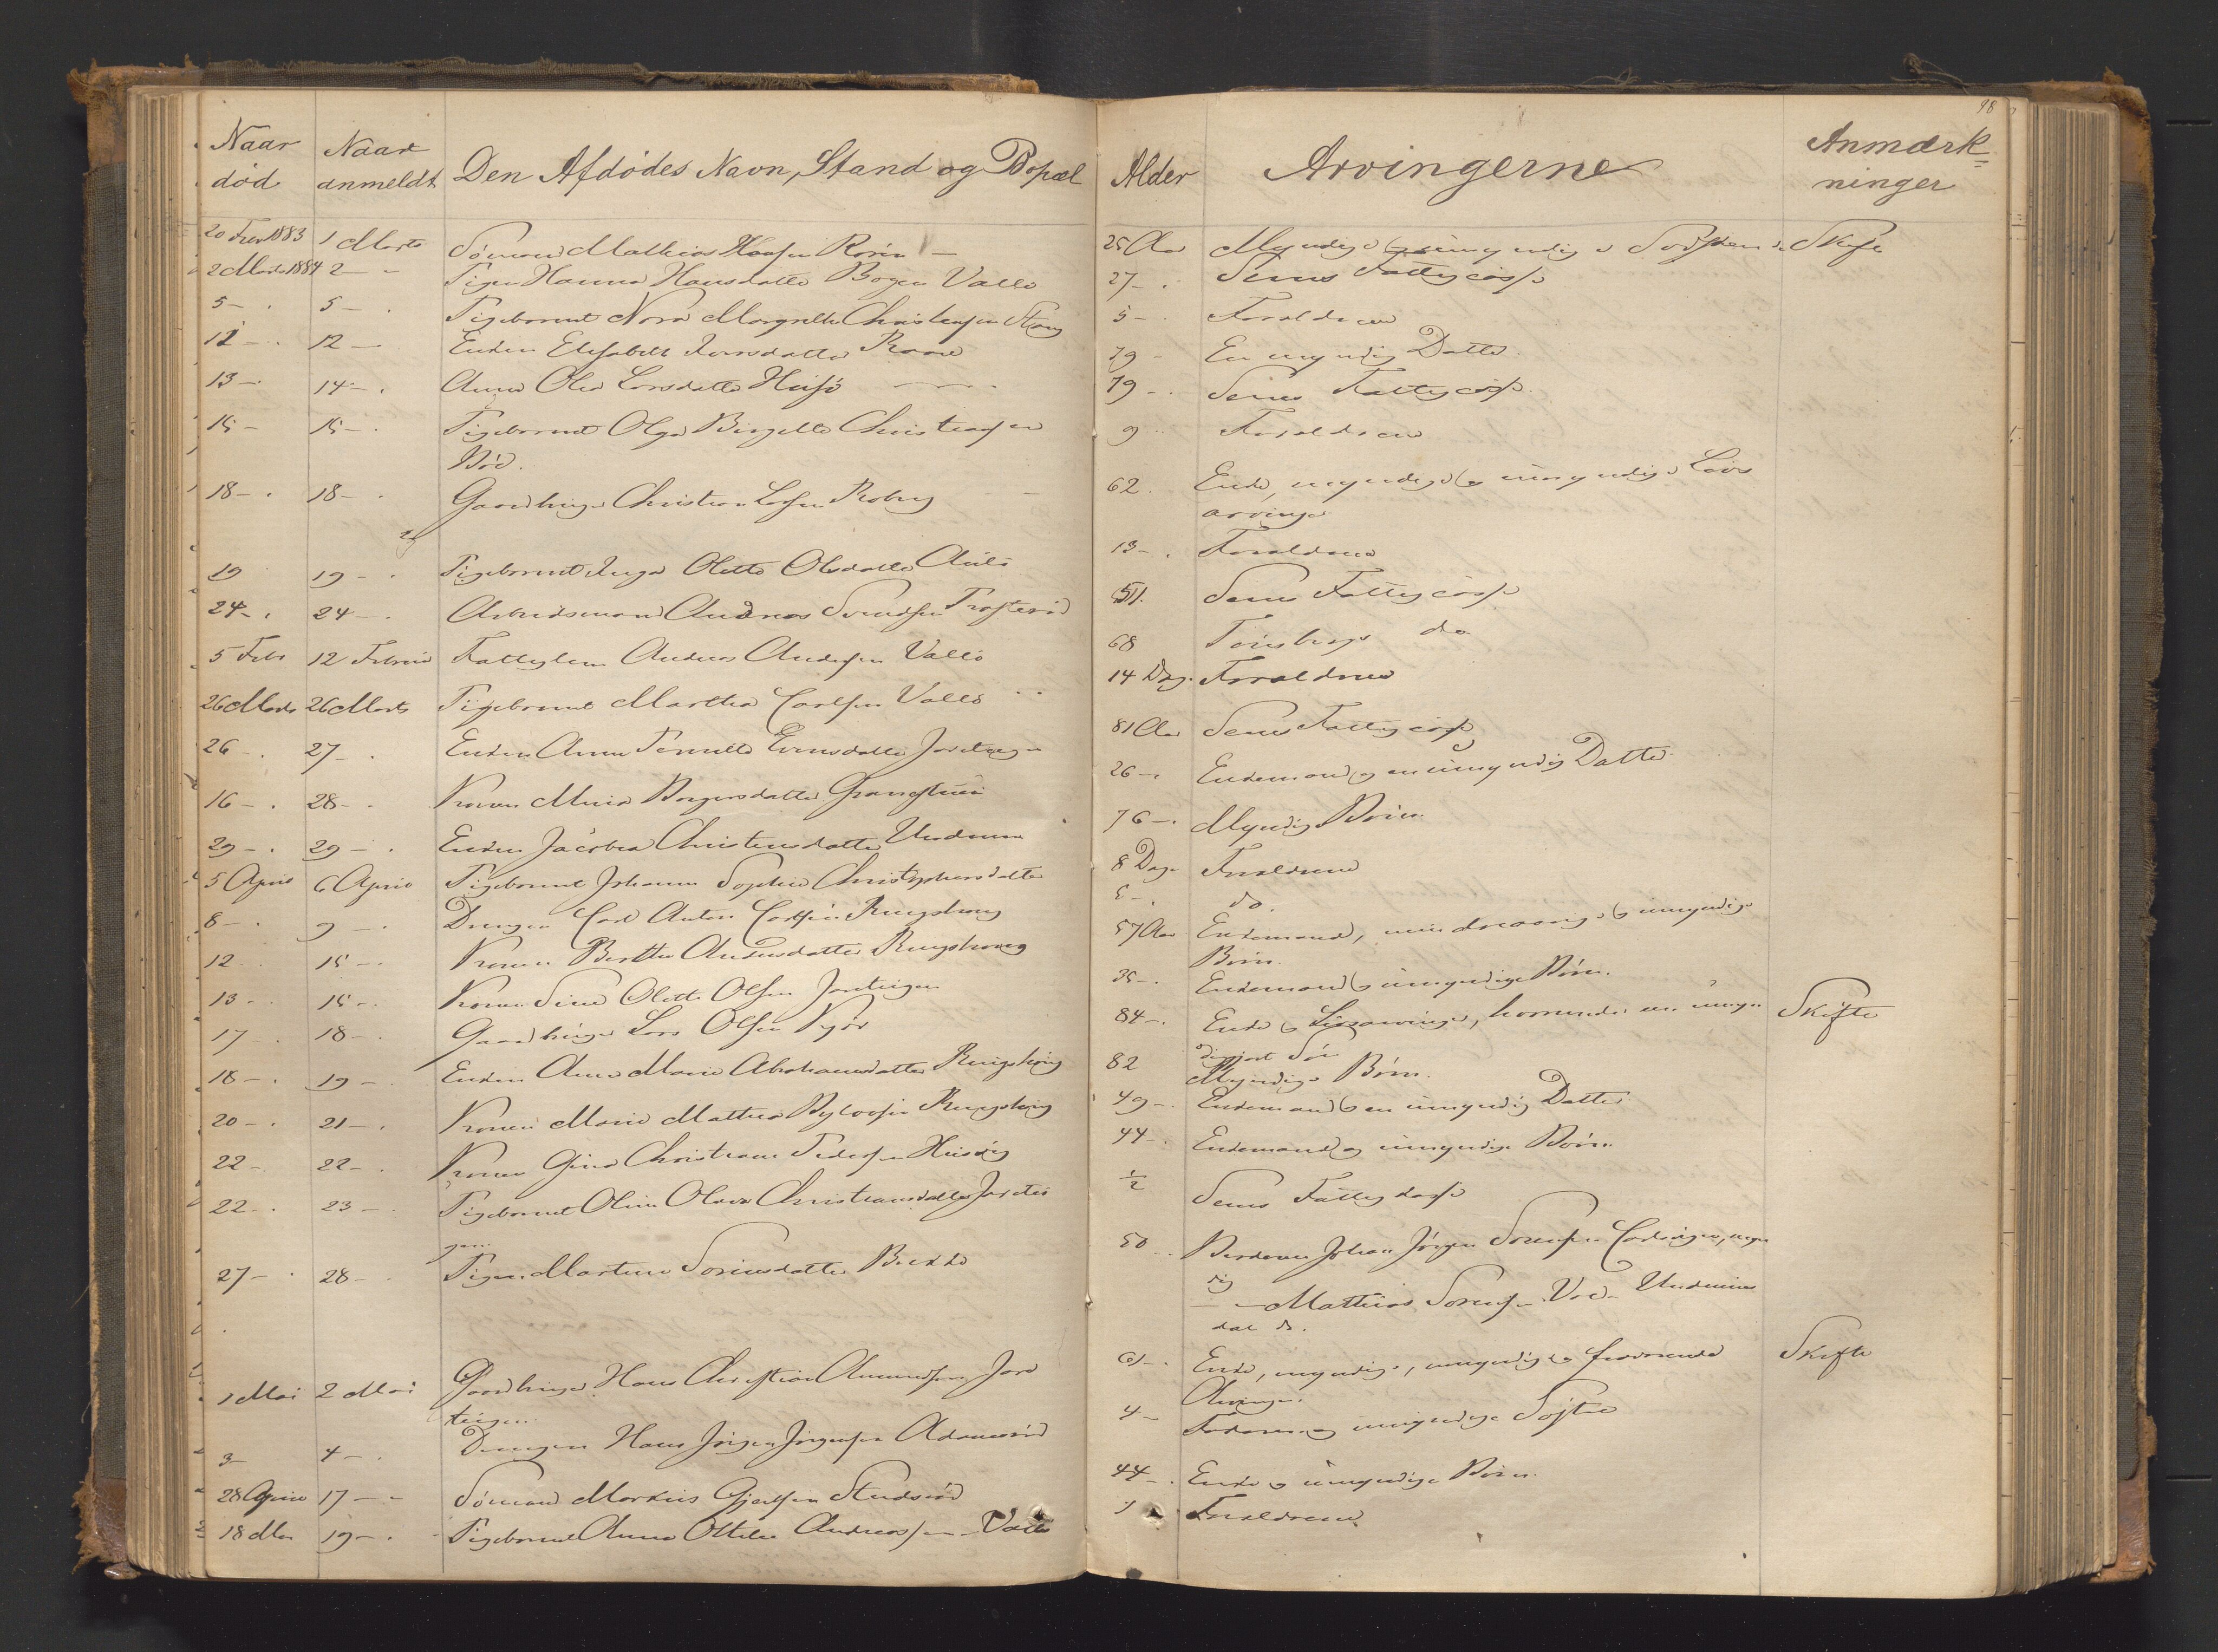 98
Naar død
Naar anmeldt
Den Afdødes Navn, Stand og Bopæl
Alder
Arvingerne
Anmærkninger
20 Febr 1883 1 Marts Sømand Mathias Hansen Rørin 25 Aar Myndige og umyndige Søskende Skifte
2 Marts 1884 2 - Pigen Hanna Hansdatter Bogen Vallø 27 - Sems Fattigcasse
5 - 5 - Pigebarnet Nora Margrethe Christensen Stang 5 - Forældrene
12 - 12 - Enken Elisabeth Iversdatter 79 - En myndig Datter
13 - 14 - Anne Olea Larsdatter Husø 79 - Sems Fattigcasse
15 - 15 - Pigebarnet Olga Birgitte Christensen 9 Forældrene
Bøe.
18 - 18 - Gaardbruger Christian Larsen Roberg 62. Enke, myndige og umyndige Livs
arvinger
19 19 - Pigebarnet Inga Olette Olsdatter 13 - Forældrene
24 - 24 - Arbeidsmand Andreas Svendsen Trosterød 51. Sems Fattigcasse
5 Febr 12 Februar Fattiglem Andreas Andersen Vallø 68 Tønsbergs do
26 Marts 26 Marts Pigebarnet Martha Carlsen Vallø 14 Dag. Forældrene
26 - 27 - Enken Anne Pernille Evensdatter Jareteigen 81 Aar Sems Fattigcasse
16 - 28 - Konen Maria Borgersdatter 26 - Enkemand og en umyndig Datter
29 - 29 - Enken Jacobea Christensdatter Undrum 76 - Myndige Børn
5 April 6 April Pigebarnet Johanne Sophie Christophersdatter 8 Dage Forældrene
8 - 9 - Drengen Carl Anton Carlsen Ringshoug 5 - do.
12 15 - Konen Berthe Andersdatter Ringshoug 57 Aar Enkemand, mindreaarige og umyndige
Børn.
13 - 15 - Konen Sina Olette Olsen Jareteigen 35 - Enkemand og umyndige Børn.
17 18 - Gaardbruger Lars Olsen 84 - Enke og Livsarvinger, horunder en umyn Skifte
diggjort Søn
18 - 19 - Enken Anne Marie Abrahamsdatter Ringshoug 82 Myndige Børn.
20 - 21 - Konen Marie Mathea Ringshoug 49 - Enkemand og en umyndig Datter
22 - 22 - Konen Gina Christiane Pedersen Husvig 44 - Enkemand og umyndige Børn
22 - 23 - Pigebarnet Oline Olava Christiansdatter Jaretei ½ Sems Fattigkasse
gen.
27 - 28 - Pigen Martine Sørensdatter Bekke 50 Brødrene Johan Jørgen Sørensen myn
dig
- Mathias Sørensen Undrums
dal do.
1 Mai 2 Mai Gaardbruger Hans Christian Amundsen Jare 61 - Enke, myndige, umyndige og fraværende Skifte
teigen. Arvinger.
3 4 - Drengen Hans Jørgen Jørgensen Adamsrød 4 - Faderen og umyndige Søstre
28 April 17 - Sømand Markus Gjertsen Studsrød 44 - Enke og umyndige Børn.
18 Mai 19 - Pigebarnet Anna Ottilie Andreassen Vallø 1 Forældrene